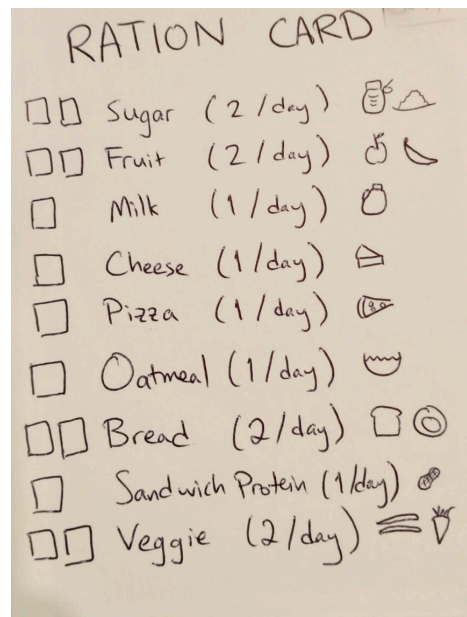 RATION CARD
Sugar (2/day)
Fruit (2/day)
Milk (1/day)
Cheese (1/day)
Pizza (1/day)
Oatmeal (1/day)
Bread (2/day)
Sandwich Protein (1/day)
Veggie (2/day)